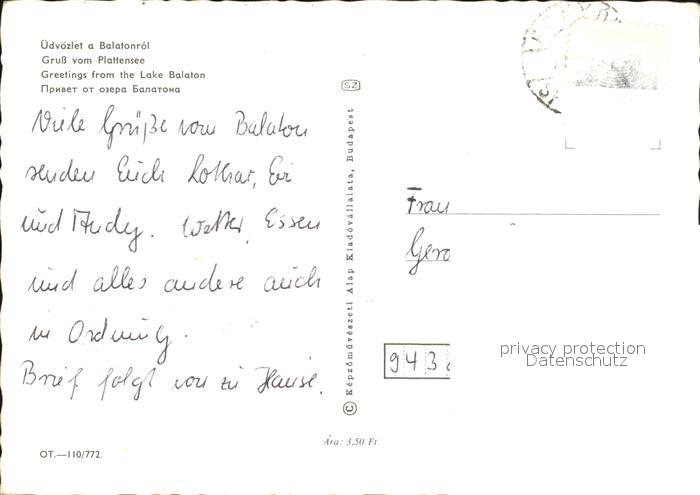 Üdvözlet a Balatonról
Gruß vom Plattensee
Greetings from the Lake Balaton
Привет от озера Балатона
Viele Grüße vom Balaton
senden Euch Lothar, Evi
und Andy. Wetter, Essen
und alles andere auch
in Ordnung.
Brief folgt von zu Hause.
OT.—110/772.
SZ
© Képzőművészeti Alap Kiadóvállalata, Budapest
Ára: 3,50 Ft
Frau
Gero
943
privacy protection
Datenschutz